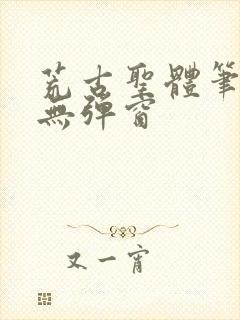 荒古聖體筆
無彈窗
又一宵